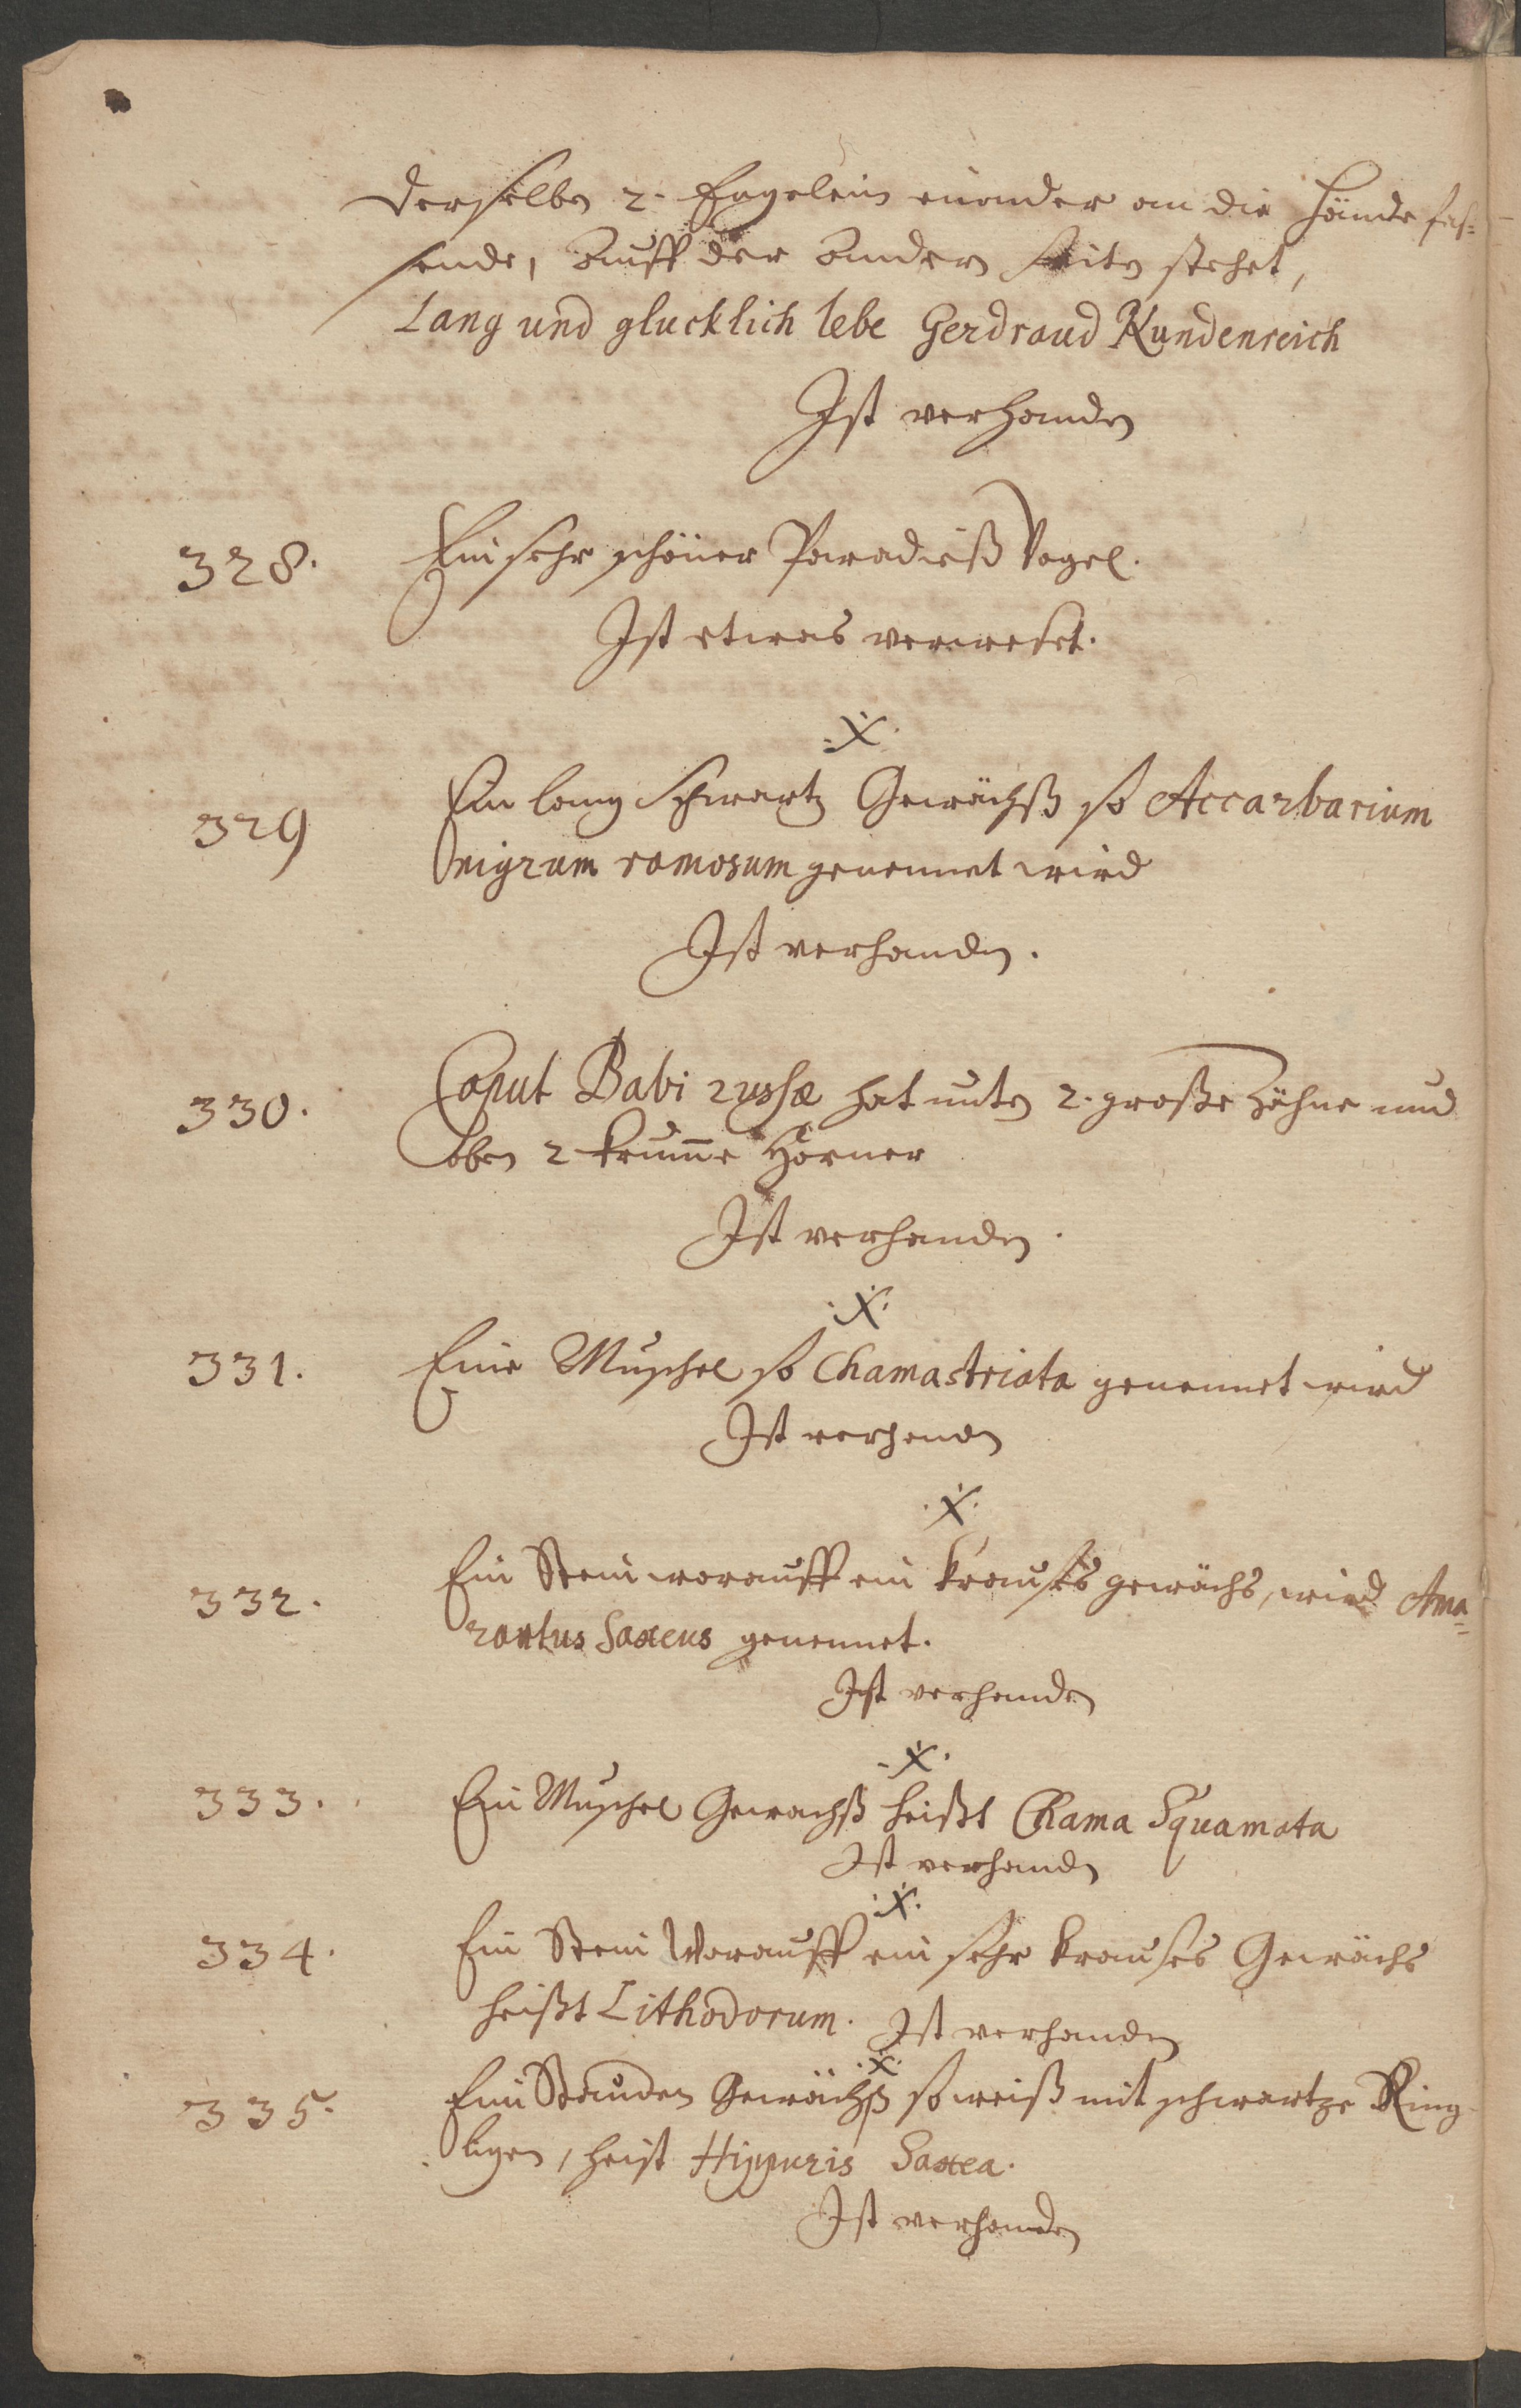 derselben 2. Engelein einander an die Hände fas=
sende, Auff der Andern seiten stehet,
Lang und glucklich lebe Gerdraud Kundenreich
Ist verhanden
328. Ein sehr schöner Paradieß Vogel.
Ist etwas verweset.
.X.
329 Ein lang schwartz Gewächß so Accarbarium
nigrum ramosum genennet wird
Ist verhanden.
330. Caput Babi russæ hat unten 2. große Zähne und
oben 2 krum̄e Hörner
Ist verhanden.
.X.
331. Eine Muschel so Chamastriata genennet wird
Ist verhanden
.X.
332. Ein Stein worauff ein krauses gewächs, wird Ama=
rantus Saxeus genennet.
Ist verhanden
.X.
333. Ein Muschel Gewachß heißt Chama Squamata
Ist verhanden
.X.
334. Ein Stein Worauff ein sehr krauses Gewächs
heißt Lithodorum. Ist verhanden
.X.
335. Ein Stauden Gewächß so weiß mit schwartze Ring
ligen, heist Hippuris Saxea.
Ist verhanden